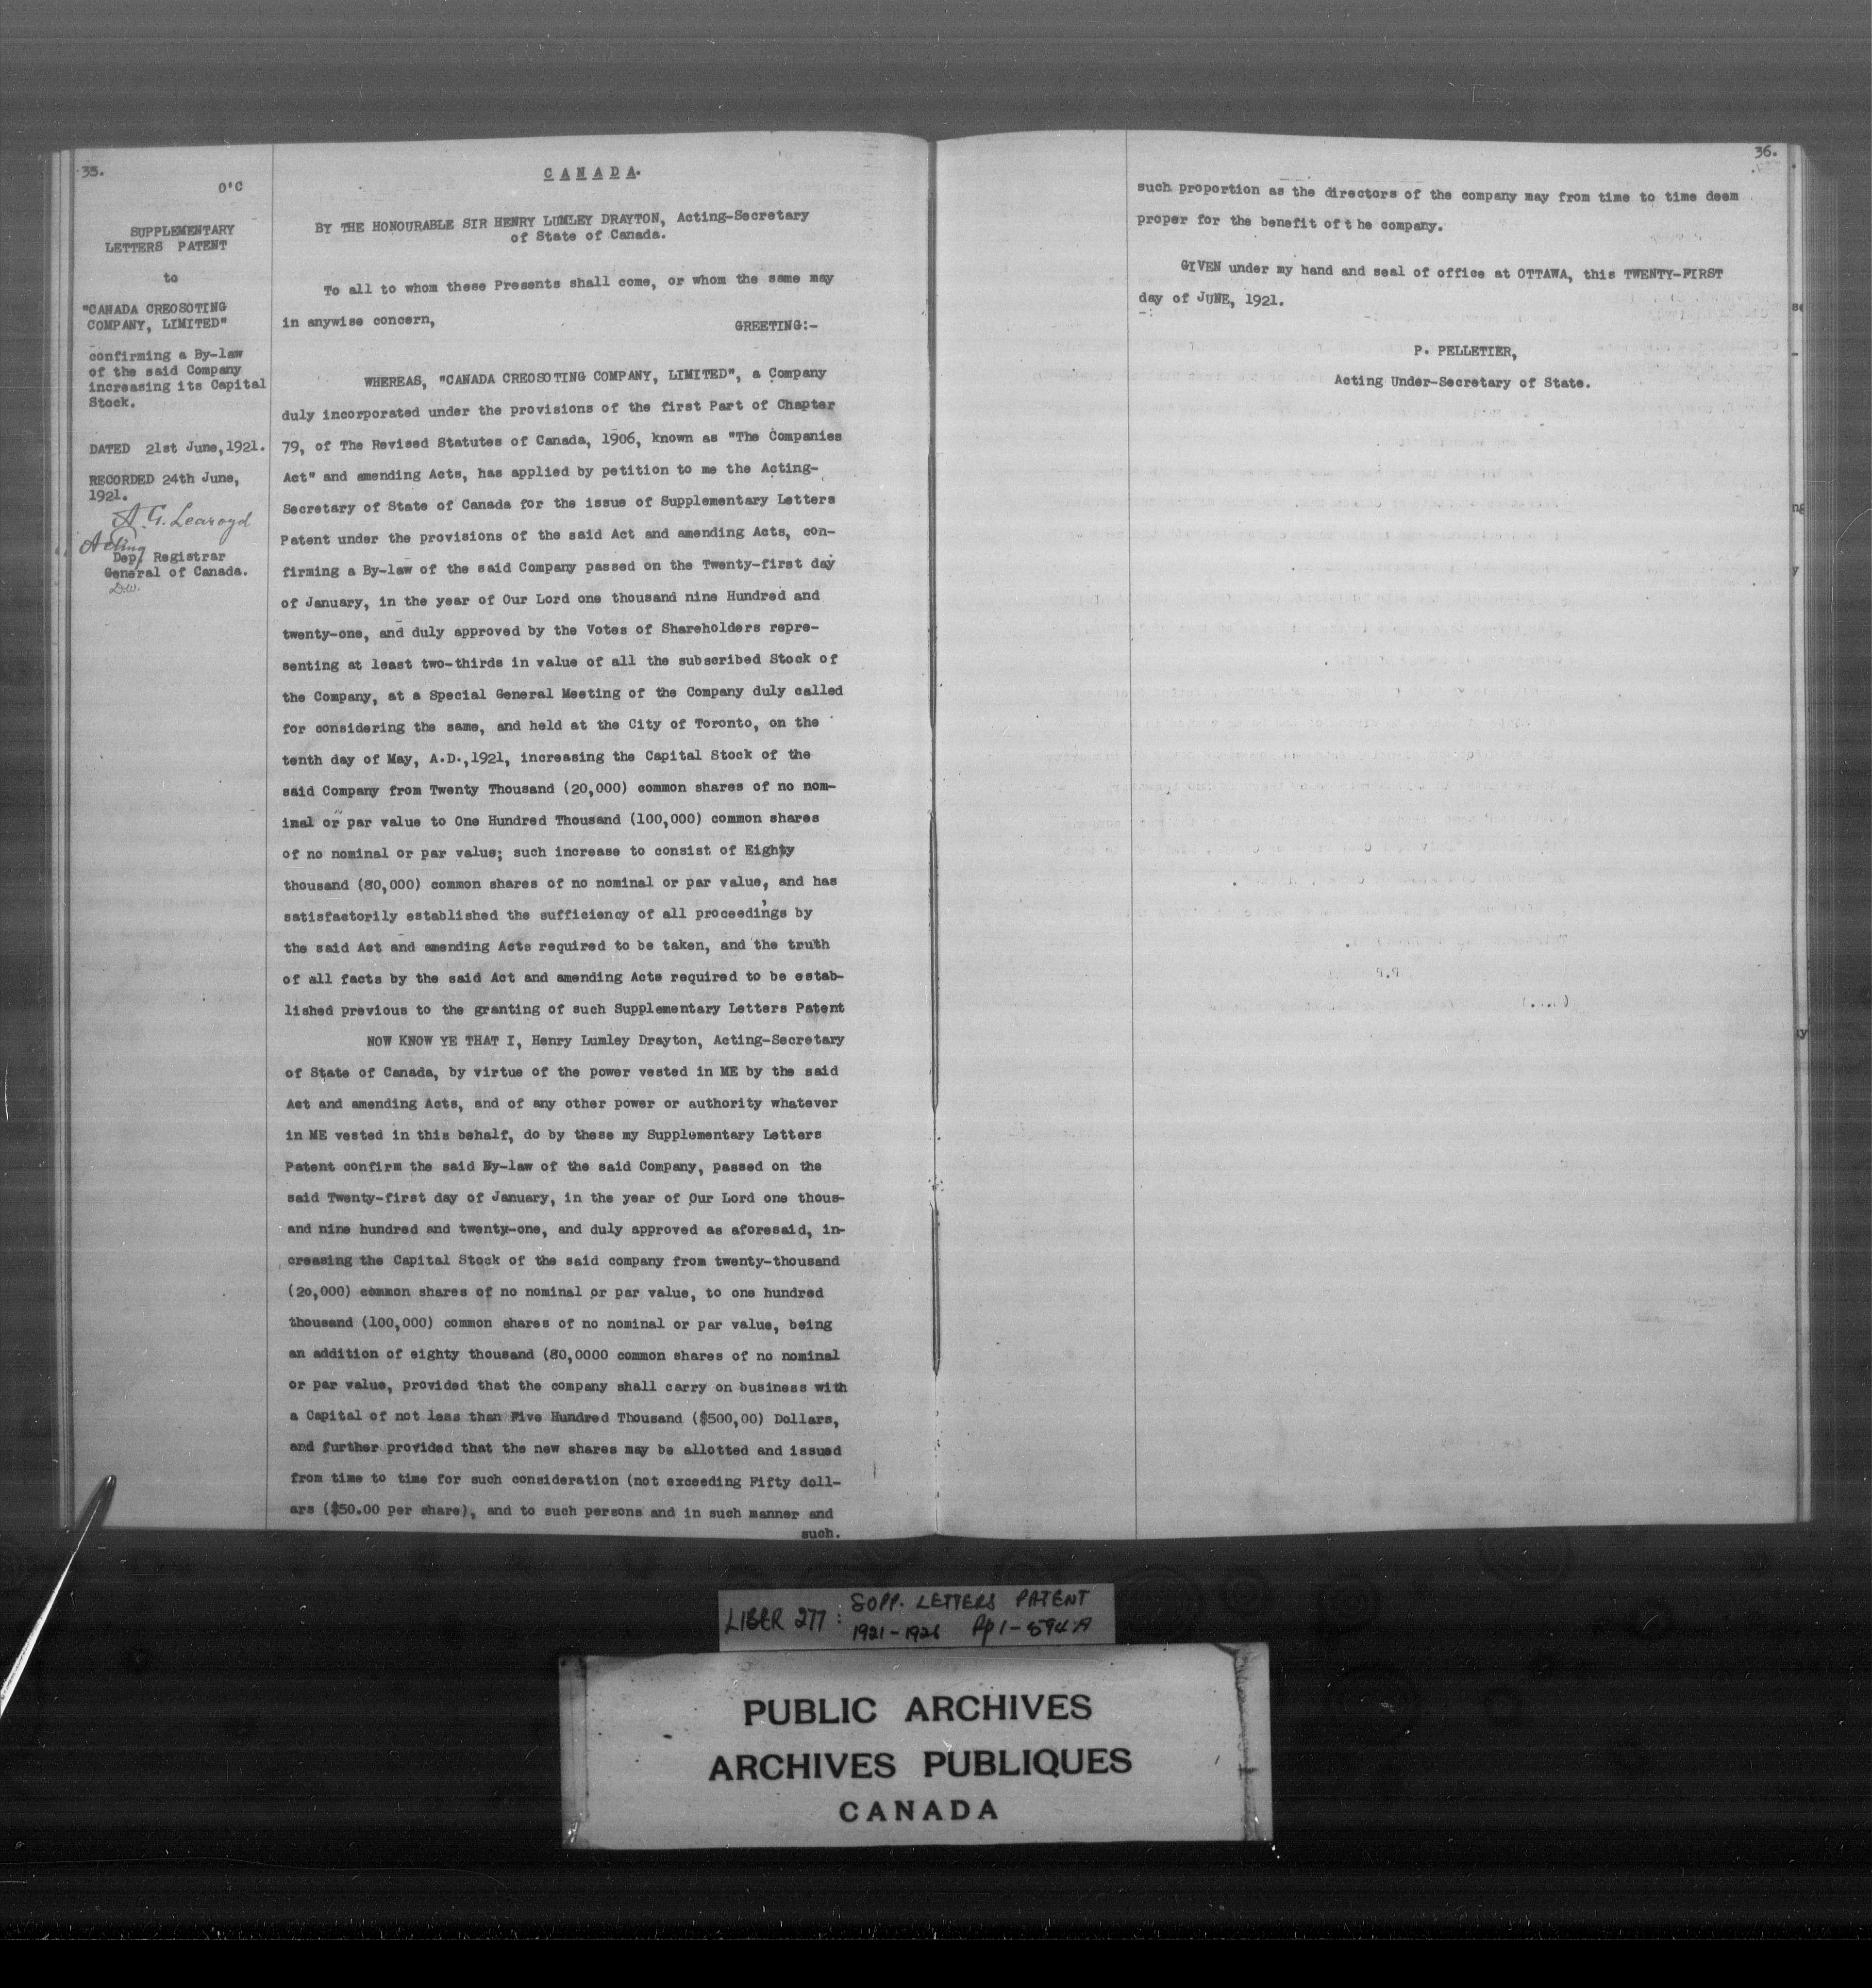 35.
O'C
SUPPLEMENTARY
LETTERS PATENT
to
"CANADA CREOSOTING
COMPANY, LIMITED"
confirming a By-law
of the said Company
increasing its Capital
Stock.
DATED 21st June, 1921.
RECORDED 24th June,
1921.
A. G. Learoyd
Acting
Dep. Registrar
General of Canada.
D.W.
CANADA.
BY THE HONOURABLE SIR HENRY LUMLEY DRAYTON, Acting-Secretary
of State of Canada.
To all to whom these Presents shall come, or whom the same may
in anywise concern, GREETING:-
WHEREAS, "CANADA CREOSOTING COMPANY, LIMITED", a Company
duly incorporated under the provisions of the first Part of Chapter
79, of The Revised Statutes of Canada, 1906, known as "The Companies
Act" and amending Acts, has applied by petition to me the Acting-
Secretary of State of Canada for the issue of Supplementary Letters
Patent under the provisions of the said Act and amending Acts, con-
firming a By-law of the said Company passed on the Twenty-first day
of January, in the year of Our Lord one thousand nine Hundred and
twenty-one, and duly approved by the Votes of Shareholders repre-
senting at least two-thirds in value of all the subscribed Stock of
the Company, at a Special General Meeting of the Company duly called
for considering the same, and held at the City of Toronto, on the
tenth day of May, A.D.,1921, increasing the Capital Stock of the
said Company from Twenty Thousand (20,000) common shares of no nom-
inal or par value to One Hundred Thousand (100,000) common shares
of no nominal or par value; such increase to consist of Eighty
thousand (80,000) common shares of no nominal or par value, and has
satisfactorily established the sufficiency of all proceedings by
the said Act and amending Acts required to be taken, and the truth
of all facts by the said Act and amending Acts required to be estab-
lished previous to the granting of such Supplementary Letters Patent
NOW KNOW YE THAT I, Henry Lumley Drayton, Acting-Secretary
of State of Canada, by virtue of the power vested in ME by the said
Act and amending Acts, and of any other power or authority whatever
in ME vested in this behalf, do by these my Supplementary Letters
Patent confirm the said By-law of the said Company, passed on the
said Twenty-first day of January, in the year of Our Lord one thous-
and nine hundred and twenty-one, and duly approved as aforesaid, in-
creasing the Capital Stock of the said company from twenty-thousand
(20,000) common shares of no nominal or par value, to one hundred
thousand (100,000) common shares of no nominal or par value, being
an addition of eighty thousand (80,0000 common shares of no nominal
or par value, provided that the company shall carry on business with
a Capital of not less than Five Hundred Thousand ($500,00) Dollars,
and further provided that the new shares may be allotted and issued
from time to time for such consideration (not exceeding Fifty doll-
ars ($50.00 per share), and to such persons and in such manner and
such.
36.
such proportion as the directors of the company may from time to time deem
proper for the benefit of t he company.
GIVEN under my hand and seal of office at OTTAWA, this TWENTY-FIRST
day of JUNE, 1921.
P. PELLETIER,
Acting Under-Secretary of State.
LIBER 277: SUPP. LETTERS PATENT
1921-1926 Pp 1-594A
PUBLIC ARCHIVES
ARCHIVES PUBLIQUES
CANADA